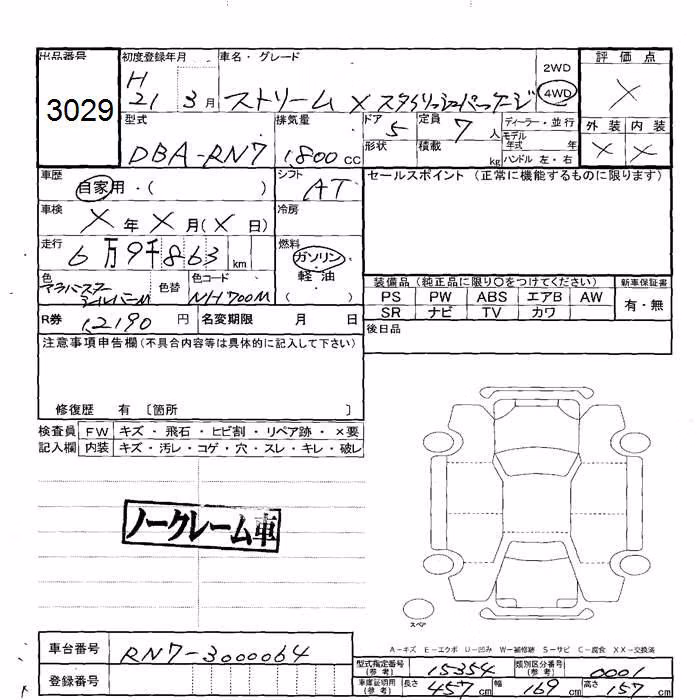 出品番号
3029
初度登録年月
H
21 3月
車名・グレード
ストリーム X スタイリッシュパッケージ
2WD
4WD
評価点
×
外装 内装
× ×
型式
DBA-RN7
排気量
1,800 CC
ドア 5
形状
定員 7 人
積載 kg
ディーラー・並行
モデル
年式 年
ハンドル 左・右
車歴
自家用・( )
シフト
AT
セールスポイント (正常に機能するものに限ります)
車検
X 年 X 月(X 日)
冷房
走行
6万9千863 km
燃料
ガソリン
軽油
( )
色
アラバスターシルバーM
色替
色コード
NH700M
装備品 (純正品に限り〇をつけてください)
新車保証書
PS PW ABS エアB AW
有・無
SR ナビ TV カワ
R券 12190 円
名変期限 月 日
後日品
注意事項申告欄(不具合内容等は具体的に記入して下さい)
修復歴 有 〔箇所 〕
検査員 FW キズ・飛石・ヒビ割・リペア跡・×要
記入欄 内装 キズ・汚レ・コゲ・穴・スレ・キレ・破レ
ノークレーム車
スペア
A-キズ E-エクボ U-凹み W-補修跡 S-サビ C-腐食 XX-交換済
車台番号
RN7-3000064
登録番号
型式指定番号
(参考)
15354
類別区分番号
(参考)
0001
車庫証明用
(参考)
長さ 457 cm 幅 169 cm 高さ 157 cm